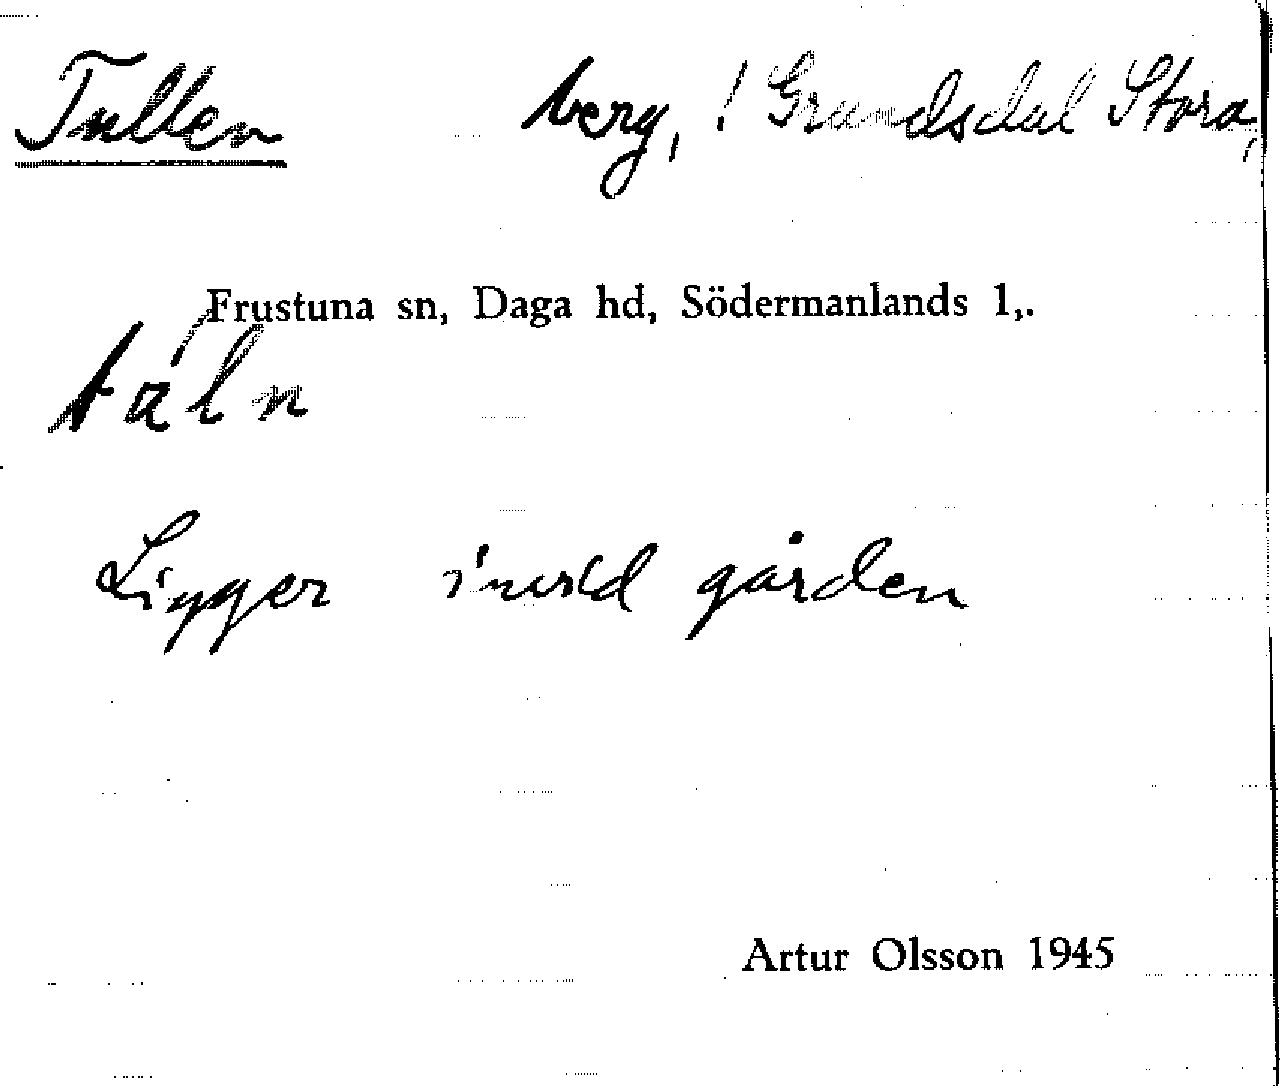 Tullen berg, ! Grundsdal Stora,
Frustuna sn, Daga hd, Södermanlands l,.
Ligger invid gården
Artur Olsson 1945